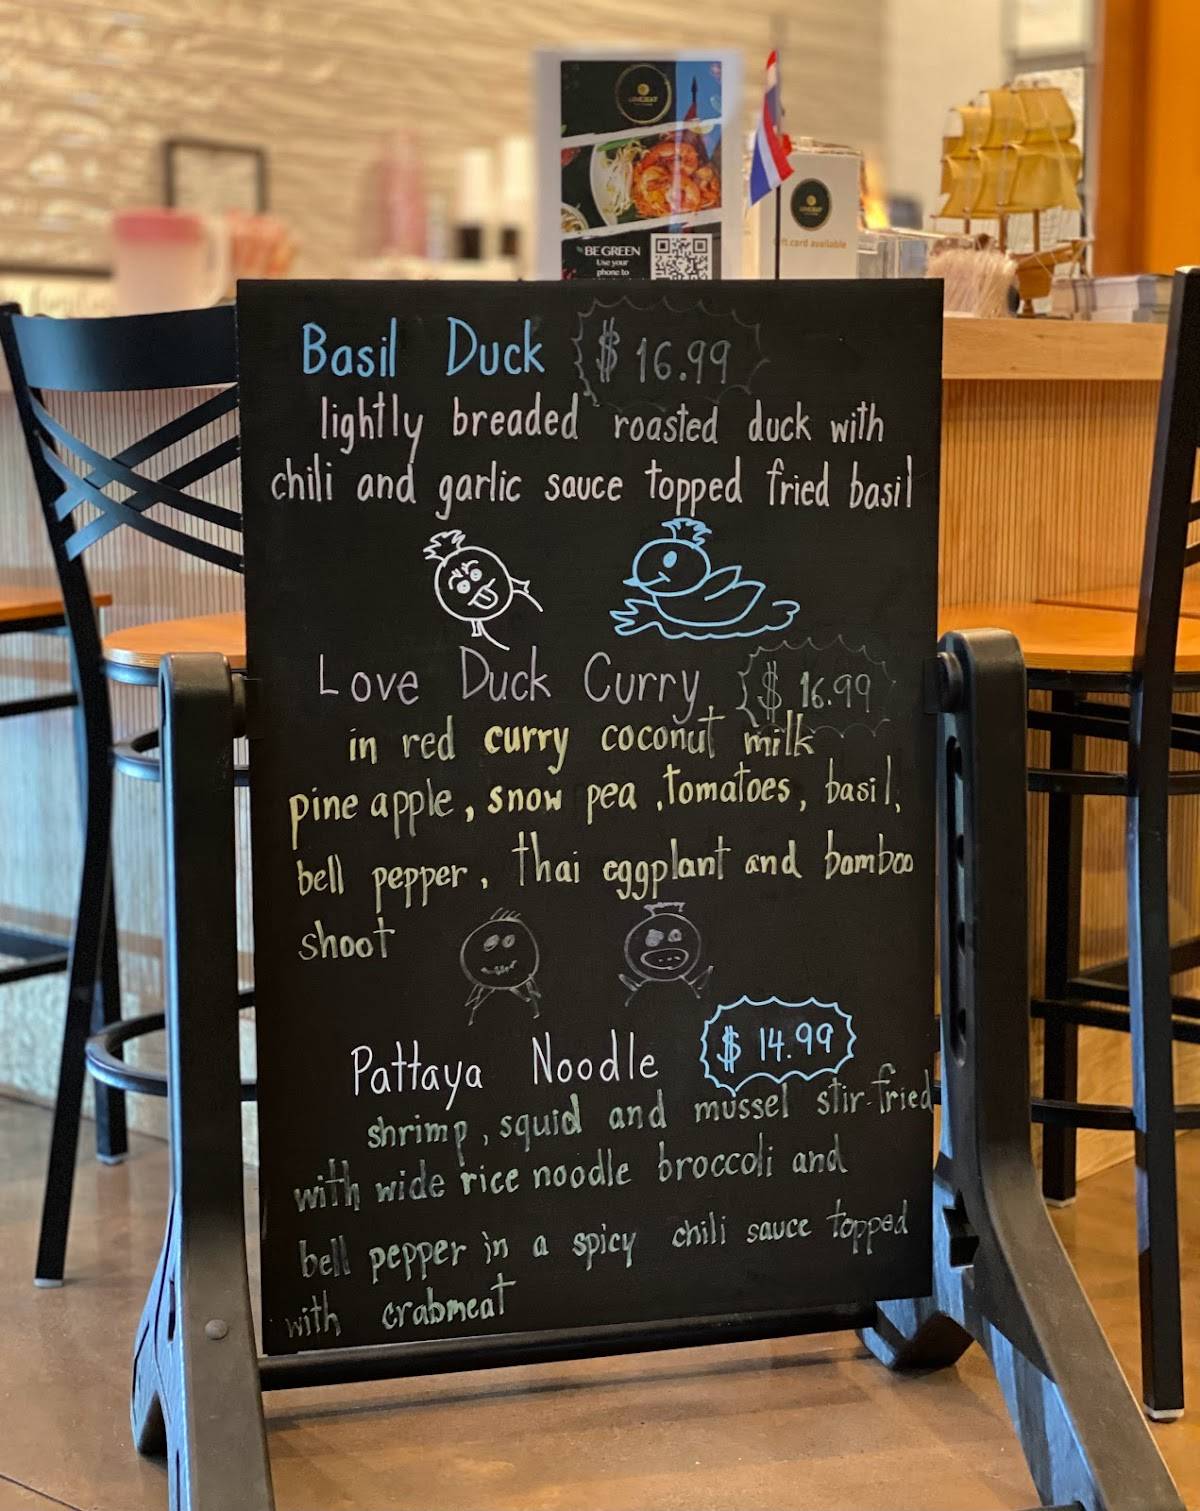 BE GREEN
Use your
phone to
card available
Basil Duck $ 16.99
lightly breaded roasted duck with
chili and garlic sauce topped fried basil
Love Duck Curry $ 16.99
in red curry coconut milk
pine apple, snow pea, tomatoes, basil,
bell pepper, Thai eggplant and bamboo
shoot
Pattaya Noodle $ 14.99
shrimp, squid and mussel stir-fried
with wide rice noodle broccoli and
bell pepper in a spicy chili sauce topped
with crabmeat